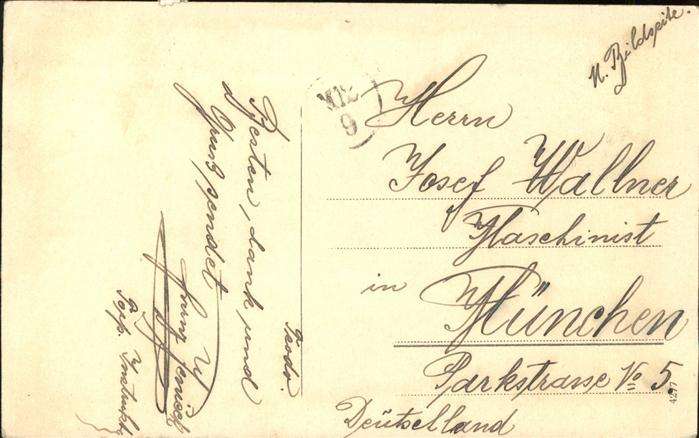 N. Bildseite.
MIZ
9
Herrn
Josef Wallner
Maschinist
in
München
Parkstrasse No 5.
Deutschland
Besten, dank und
Gruß, sendet
4277